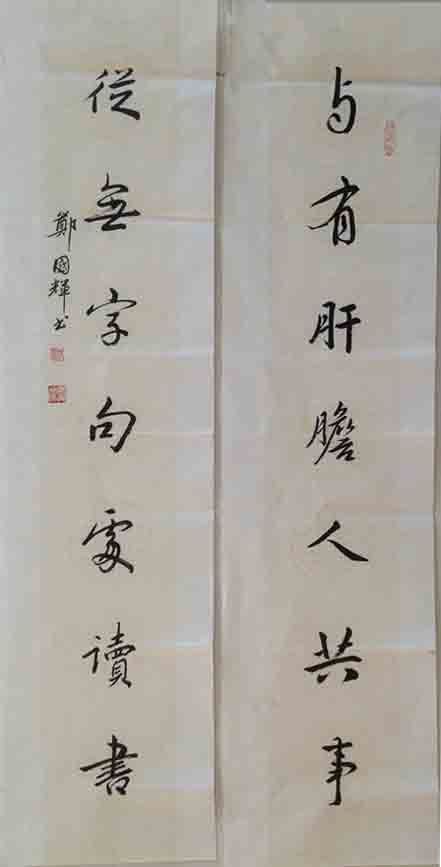 与有肝膽人共事
從無字句處讀書
鄭國輝书